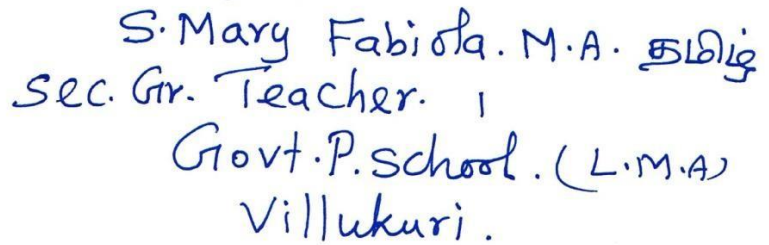 S. Mary Fabiola. M.A. தமிழ்
Sec. Gr. Teacher. 1
Govt. P. School. (L.M.A)
Villukuri.